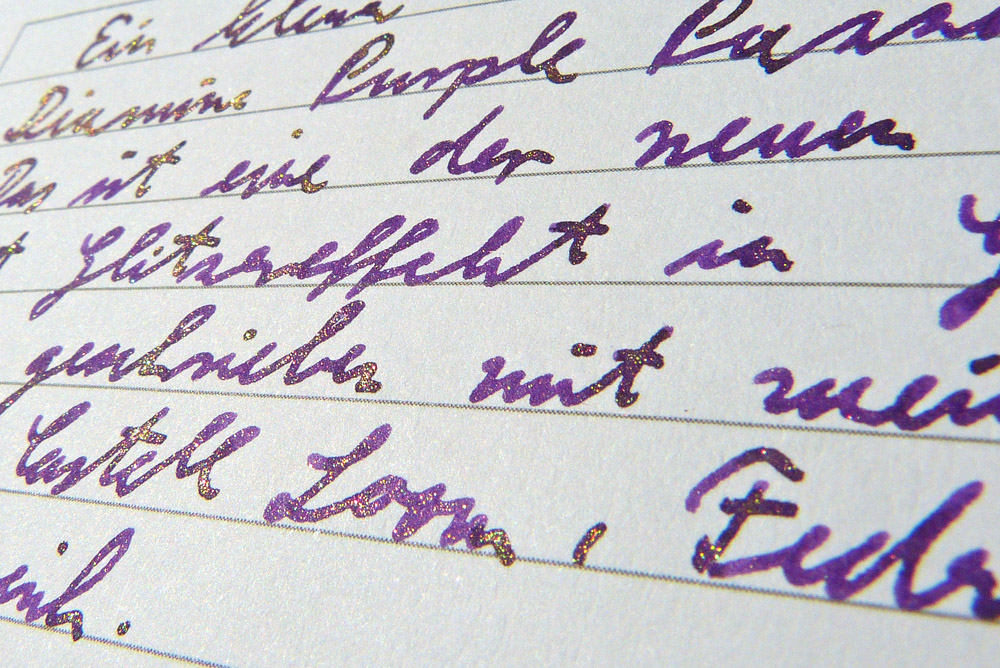 Ein kleiner
Diamine Purple
Das ist eine der neuen
Glitzereffekt in
geschrieben mit mein
Castell Loom, Feder